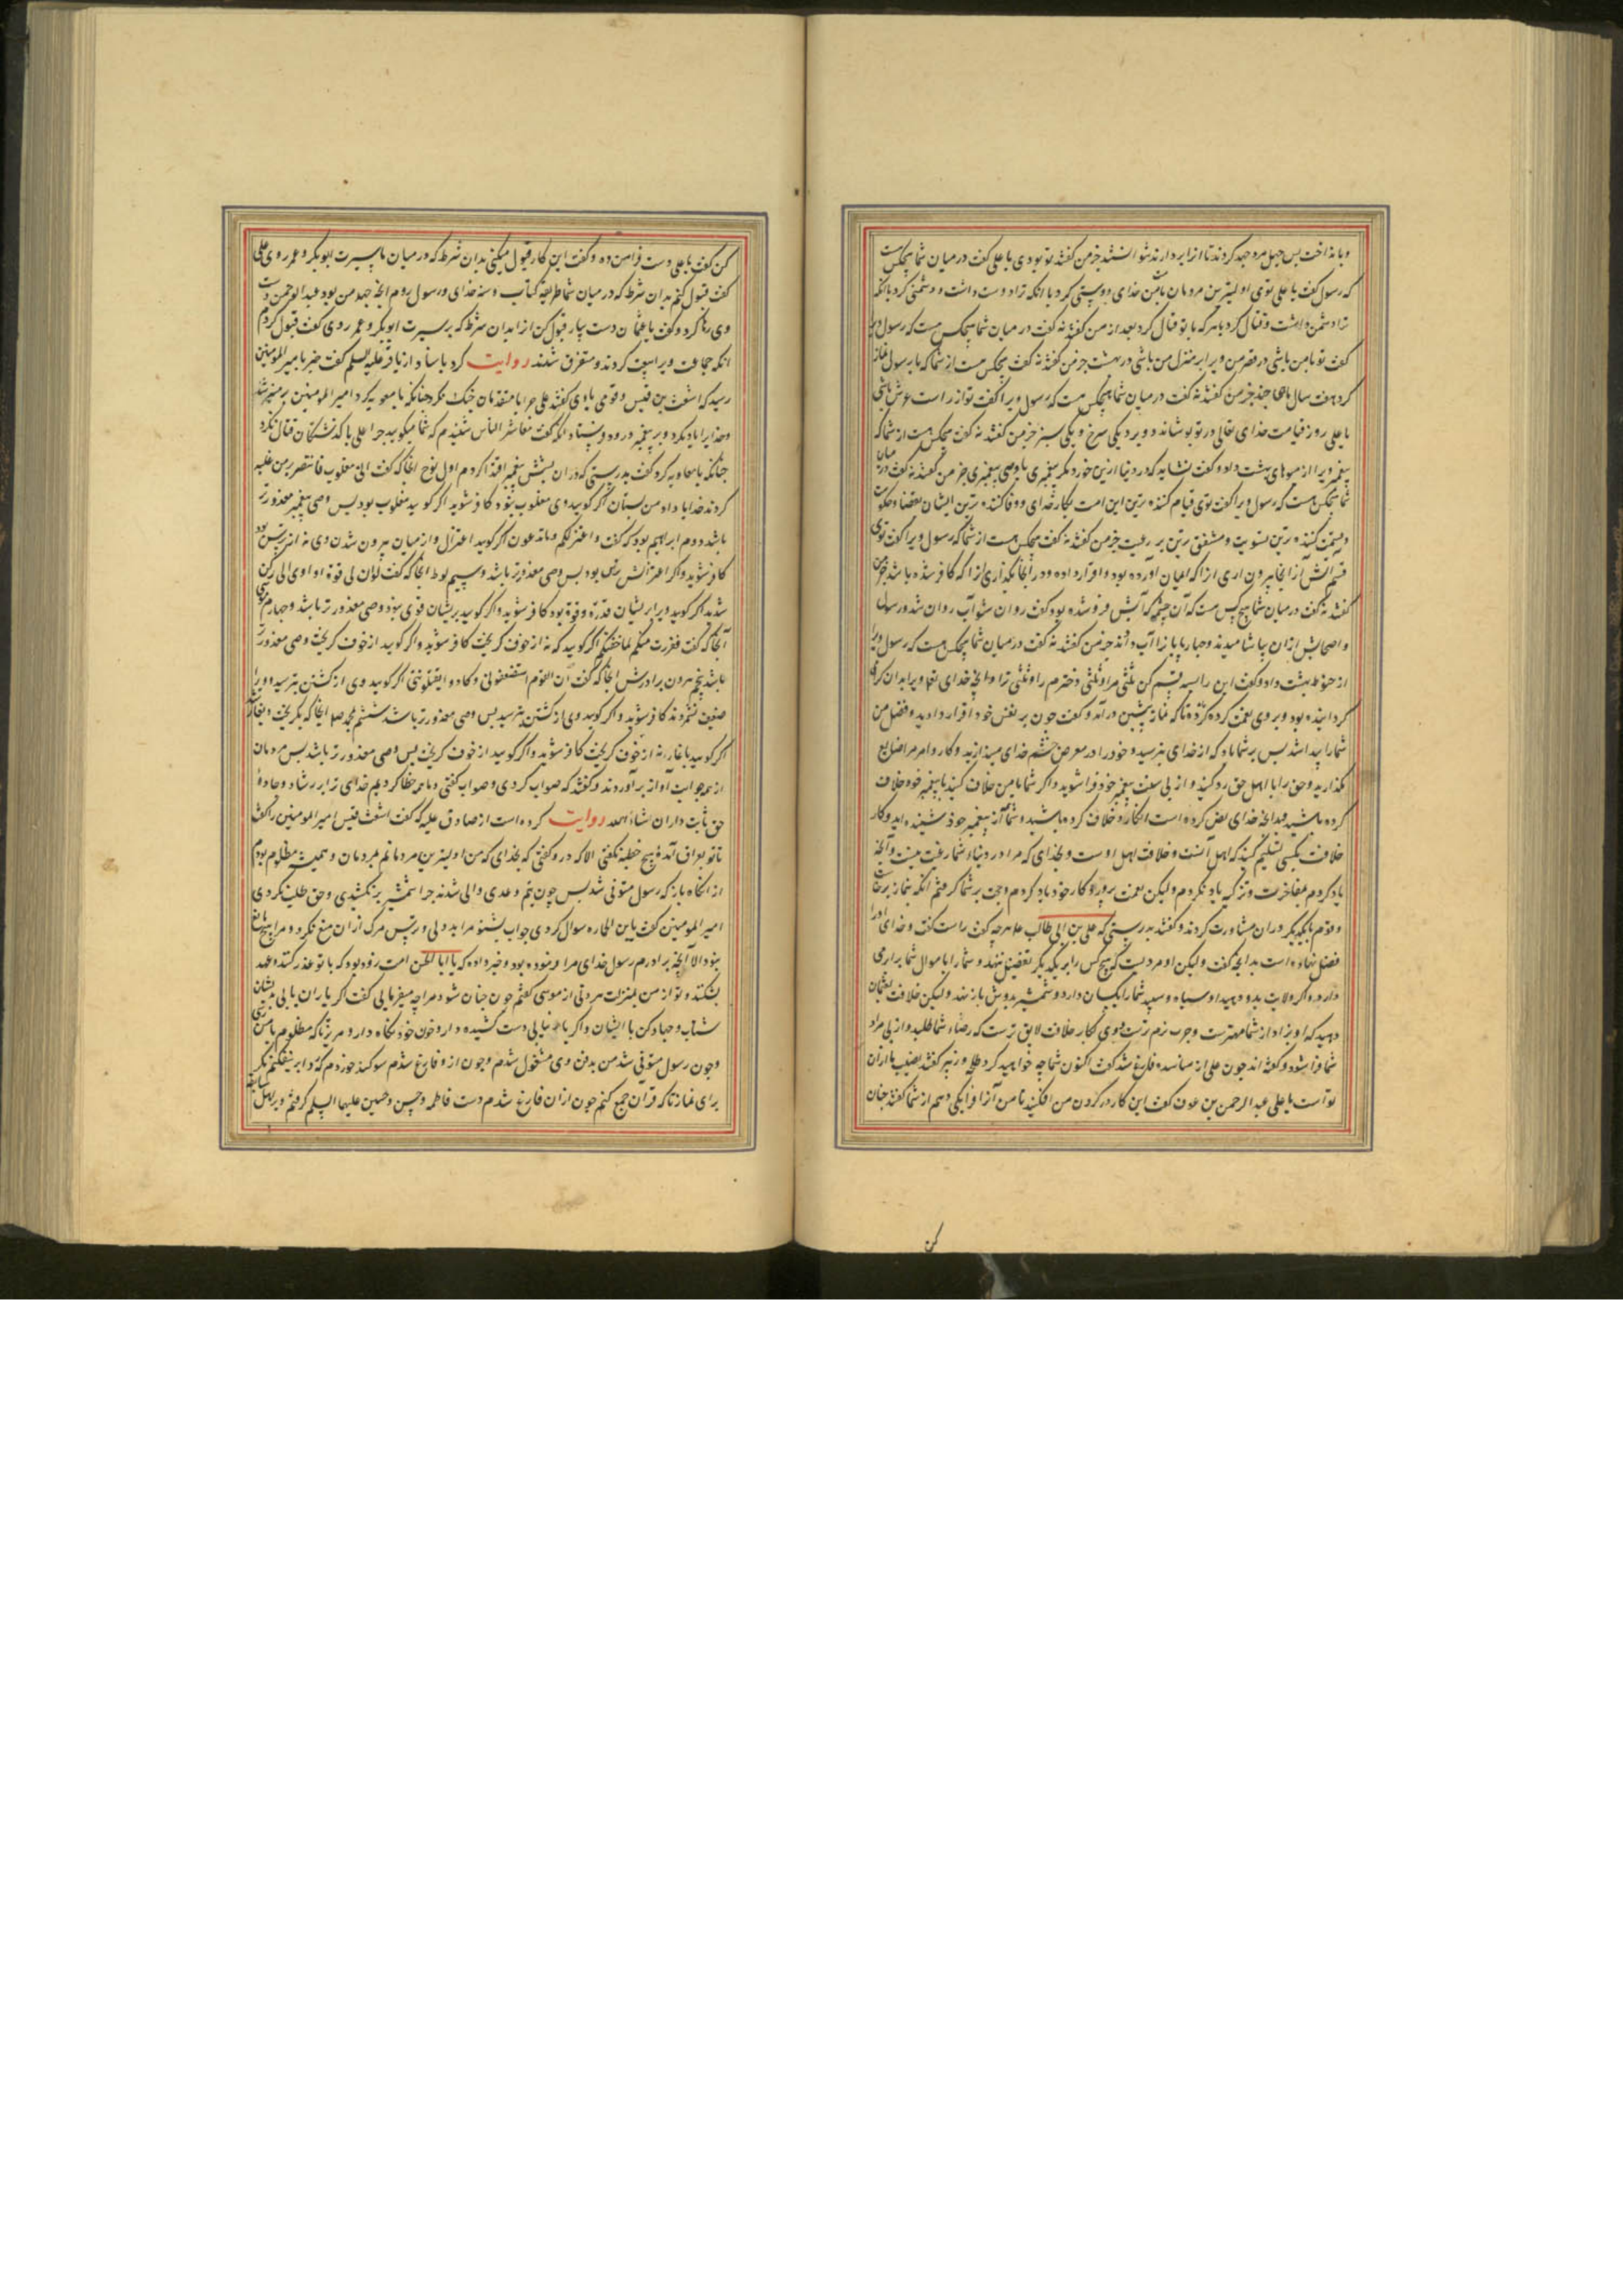 وبانداخت پس چهل مرد جهد کردند تا انرا بردارند نتوانستند جز من گفتند تو بودی یا علی گفت در میان شما هیچکس هست
که رسول گفت یا علی توی اولیترین مردمان بمن خدای دوستی کرد با انکه ترا دوست داشت و دشمنی کرد بانکه
ترا دشمن داشت و قتال کرد با هر که با تو قتال کرد بعد از من گفتند نه گفت در میان شما هیچکس هست که رسول ویرا
گفت تو با من باشی در قصر من و برابر منزل من باشی در بهشت جز من گفتند نه گفت هیچکس هست از شما که با رسول نماز
کرد هفت سال جز من گفتند نه گفت در میان شما هیچکس هست که رسول ویرا گفت تو از راست عرش باشی
یا علی روز قیامت خدای تعالی در تو پوشاند دو برد یکی سرخ و یکی سبز جز من گفتند نه گفت هیچکس هست از شما که
پیغمبر ویرا از میوهای بهشت داد و گفت نشاید که در دنیا ازین خورد مگر پیغمبری یا وصی پیغمبری جز من گفتند نه گفت در میان
شما هیچکس هست که رسول ویرا گفت توی قیام کننده ترین این امت بکار خدای و وفا کننده ترین ایشان بقضا و حکومت
و قسمت کننده ترین بسویت و مشفق ترین بر رعیت جز من گفتند نه گفت هیچکس هست از شما که رسول ویرا گفت توی
قسیم آتش از انجا بیرون اری انرا که ایمان آورده بود و اقرار داده و در آنجا بگذاری انرا که کافر شده باشد جز من
گفتند نه گفت در میان شما هیچ کس هست که آن چشمه که آبش فرو شده بود گفت روان شو آب روان شد و رسول
و اصحابش ازان بیاشامیدند و چهارپایانرا آب دادند جز من گفتند نه گفت در میان شما هیچکس هست که رسول ویرا
از حنوط بهشت داد و گفت این را بسه قسم کن ثلثی مرا و ثلثی دخترم را و ثلثی ترا
گردانیده بود و بر وی نعمت کرده تا که نماز پیشین در آمد و گفت چون بر نفس خود اقرار دادید و فضل من
شما را پیدا شد پس بر شما باد که از خدای بترسید و خود را در معرض خشم خدای میندازید و کار و امر مرا ضایع
مگذارید و حق را با اهل حق رد کنید و از پی سنت پیغمبر خود فرا شوید و اگر شما با من خلاف کنید با پیغمبر خود خلاف
کرده باشید
خلافت بکسی تسلیم کنید که اهل آنست و خلافت اهل اوست و بخدای که مرا در دنیاء شما رغبت نیست و آنچه
یاد کردم مفاخرت و تزکیه یاد نکردم ولیکن نعمت پروردگار خود یاد کردم و حجت بر شما گرفتم انگه بنماز برخاست
و قوم با یکدیگر دران مشاورت کردند و گفتند بدرستی که علی بن ابی طالب هرچه گفت راست گفت و خدای اورا
فضل نهاده است بدانچه گفت ولیکن او مردیست که هیچ کس را بر یکدیگر تفضیل ننهد و شما را با موالی شما برابر می
دارد و اگر ولایت بدو دهید او سیاه و سپید شما را یکسان دارد و شمشیر بدوش باز نهد ولیکن خلافت بعثمان
دهید که او بزاد از شما مهترست و چرب نرم ترست و وی بکار خلافت لایق ترست که رضاء شما طلبد و از پی مراد
شما فرا شود و گفته اند چون علی از مناشده فارغ شد گفت اکنون شما چه خواهید کرد طلحه و زبیر گفتند نصیب ما ازان
تو است یا علی عبد الرحمن بن عوف گفت این کار در گردن من افکنید تا من آنرا فرا یکی دهم از شما گفتند چنان
کن
کن گفت یا علی دست فرا من ده و گفت این کار قبول میکنی بدان شرط که در میان ما بسیرت ابوبکر و عمر روی علی
گفت قبول کنم بدان شرط که در میان شما طریقه کتاب و سنة خدای و رسول روم انچه جهد من بود عبد الرحمن دست
وی رها کرد و گفت یا عثمان دست بیار قبول کن از ما بدان شرط که بر سیرت ابوبکر و عمر روی گفت قبول کردم
انگه جماعت ویرا بیعت کردند و متفرق شدند روایت کرد باسناد از باقر علیه السلم گفت خبر بامیر المومنین
رسید که اشعث بن قیس و قومی با وی گفتند علی چرا با متقدمان جنگ نکرد چنانکه با معویه کرد امیر المومنین بر منبر شد
و خدایرا یاد کرد و بر پیغمبر درود فرستاد انگه گفت معاشر الناس شنیدم که شما میگویید چرا علی با گذشتگان قتال نکرد
چنانکه با معاویه کرد گفت بدرستی که دران بشش پیغمبر اقتدا کردم اول نوح انجا که گفت انی مغلوب فانتصر بر من غلبه
کردند خدایا داد من بستان اگر گویید وی مغلوب نبود کافر شوید اگر گویید مغلوب بود پس وصی پیغمبر معذورتر
باشد دوم ابراهیم بود که گفت و اعتزلکم و ما تدعون اگر گویید اعتزال و از میان بیرون شدن وی نه از ترس بود
کافر شوید و اگر اعتزالش از ترس بود پس وصی معذورتر باشد و سیم لوط انجا که گفت لو ان لی بکم قوة او اوی الی رکن
شدید اگر گویید ویرا بر ایشان قدرة و قوة بود کافر شوید و اگر گویید بریشان قوی نبود وصی معذورتر باشد و چهارم موسی
آنجا که گفت ففررت منکم لما خفتکم اگر گویید که نه از خوف گریخت کافر شوید و اگر گویید از خوف گریخت وصی معذورتر
باشد پنجم هرون برادرش انجا که گفت ان القوم استضعفونی و کادوا یقتلوننی اگر گویید وی از کشتن نترسید و ویرا
ضعیف نشمردند کافر شوید و اگر گویید وی از کشتن بترسید پس وصی معذورتر باشد ششم محمد انجا که بگریخت و بغار شد
اگر گویید با غار نه از خوف گریخت کافر شوید و اگر گویید از خوف گریخت پس وصی معذورتر باشد پس مردمان
از هر جوانب آواز بر آوردند و گفتند که صواب کردی و صواب گفتی و ما همه خطا کردیم خدای ترا بر رشاد و جادهٔ
حق ثابت داراد ان شاء الله روایت کرده است از صادق علیه که گفت اشعث قیس امیر المومنین را گفت
تا تو بعراق آمدهٔ هیچ خطبه نگفتی الا که درو گفتی که بخدای که من اولیترین مردمانم بمردمان و همیشه مظلوم بودم
از انگاه باز که رسول متوفی شد پس چون تیم و عدی والی شدند چرا شمشیر بر نکشیدی و حق طلب نکردی
امیر المومنین گفت یابن الخماره سوال کردی جواب بشنو مرا بددلی و ترس مرگ ازان منع نکرد و مرا هیچ مانع
نبود الا آنچه برادرم رسول خدای مرا فرموده بود و خبر داده که یا ابا الحسن امت زود بود که با تو غدر کنند و عهد
بشکنند و تو از من بمنزلت هرونی از موسی گفتم چون چنان شود مرا چه میفرمایی گفت اگر یاران یابی بدیشان
شتاب و جهاد کن با ایشان و اگر یاور نیابی دست کشیده دار و خون خود نگاه دار و مریز تا که مظلوم با من رسی
و چون رسول متوفی شد من بدفن وی مشغول شدم و چون ازو فارغ شدم سوگند خوردم که ردا بر نیفکنم مگر
برای نماز تا که قرآن جمع کنم چون ازان فارغ شدم دست فاطمه و حسن و حسین علیهما السلم گرفتم و بر اهل سابقه